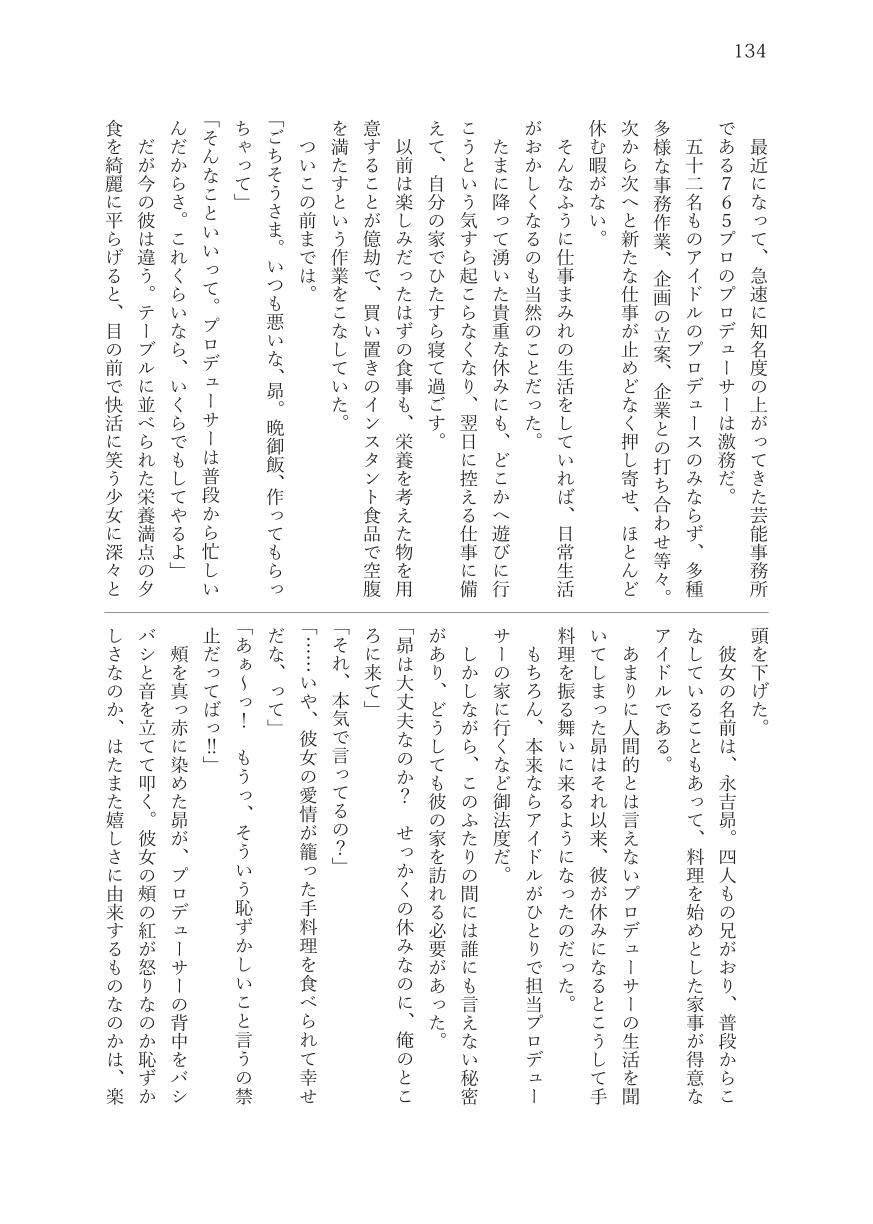 134
　最近になって、急速に知名度の上がってきた芸能事務所
である７６５プロのプロデューサーは激務だ。
　五十二名ものアイドルのプロデュースのみならず、多種
多様な事務作業、企画の立案、企業との打ち合わせ等々。
次から次へと新たな仕事が止めどなく押し寄せ、ほとんど
休む暇がない。
　そんなふうに仕事まみれの生活をしていれば、日常生活
がおかしくなるのも当然のことだった。
　たまに降って湧いた貴重な休みにも、どこかへ遊びに行
こうという気すら起こらなくなり、翌日に控える仕事に備
えて、自分の家でひたすら寝て過ごす。
　以前は楽しみだったはずの食事も、栄養を考えた物を用
意することが億劫で、買い置きのインスタント食品で空腹
を満たすという作業をこなしていた。
　ついこの前までは。
「ごちそうさま。いつも悪いな、昴。晩御飯、作ってもらっ
ちゃって」
「そんなこといいって。プロデューサーは普段から忙しい
んだからさ。これくらいなら、いくらでもしてやるよ」
　だが今の彼は違う。テーブルに並べられた栄養満点の夕
食を綺麗に平らげると、目の前で快活に笑う少女に深々と
頭を下げた。
　彼女の名前は、永吉昴。四人もの兄がおり、普段からこ
なしていることもあって、料理を始めとした家事が得意な
アイドルである。
　あまりに人間的とは言えないプロデューサーの生活を聞
いてしまった昴はそれ以来、彼が休みになるとこうして手
料理を振る舞いに来るようになったのだった。
　もちろん、本来ならアイドルがひとりで担当プロデュー
サーの家に行くなど御法度だ。
　しかしながら、このふたりの間には誰にも言えない秘密
があり、どうしても彼の家を訪れる必要があった。
「昴は大丈夫なのか？　せっかくの休みなのに、俺のとこ
ろに来て」
「それ、本気で言ってるの？」
「……いや、彼女の愛情が籠った手料理を食べられて幸せ
だな、って」
「あぁ～っ！　もうっ、そういう恥ずかしいこと言うの禁
止だってばっ‼」
　頬を真っ赤に染めた昴が、プロデューサーの背中をバシ
バシと音を立てて叩く。彼女の頬の紅が怒りなのか恥ずか
しさなのか、はたまた嬉しさに由来するものなのかは、楽